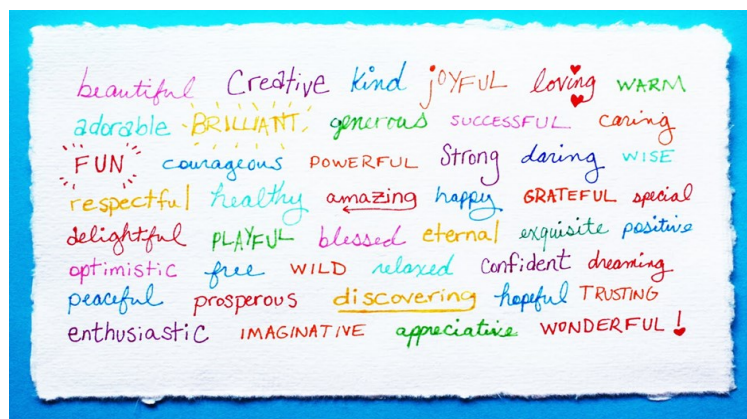 beautiful Creative kind jOYFUL loving WARM
adorable BRILLIANT generous SUCCESSFUL caring
FUN courageous POWERFUL Strong daring WISE
respectful healthy amazing happy GRATEFUL special
delightful PLAYFUL blessed eternal exquisite positive
optimistic free WILD relaxed confident dreaming
peaceful prosperous discovering hopeful TRUSTING
enthusiastic IMAGINATIVE appreciative WONDERFUL!